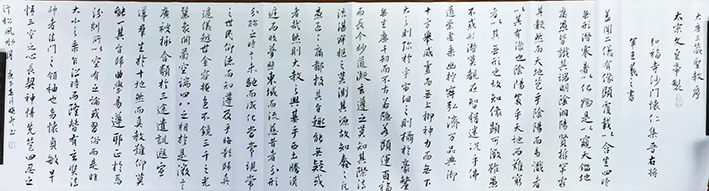 大唐三藏聖教序
太宗文皇帝製
弘福寺沙門懷仁集晉右將
軍王羲之書
蓋聞二儀有像顯覆載以含生四時
無形潛寒暑以化物是以窺天鑑地
庸愚皆識其端明陰洞陽賢哲罕窮
其數然而天地苞乎陰陽而易識者
以其有像也陰陽處乎天地而難窮
者以其無形也故知像顯可徵雖愚
不惑形潛莫覩在智猶迷況乎佛
道崇虛乘幽控寂弘濟萬品典御
十方舉威靈而無上抑神力而無下
大之則彌於宇宙細之則攝於豪釐
無滅無生歷千劫而不古若隱若顯運百福
而長今妙道凝玄遵之莫知其際法
流湛寂挹之莫測其源故知蠢蠢凡
愚區區庸鄙投其旨趣能無疑或
者哉然則大教之興基乎西土騰漢
庭而皎夢照東域而流慈昔者分形
分跡之時言未馳而成化當常現常
之世民仰德而知遵及乎晦影歸真
遷儀越世金容掩色不鏡三千之光
麗象開圖空端四八之相於是微言
廣被拯含類於三途遺訓遐宣
導群生於十地然而真教難仰莫
能一其旨歸曲學易遵耶正於焉
紛糾所以空有之論或習俗而是非
大小之乘乍沿時而隆替有玄奘法
師者法門之領袖也幼懷貞敏早
悟三空之心長契神情先苞四忍之
行松風水月